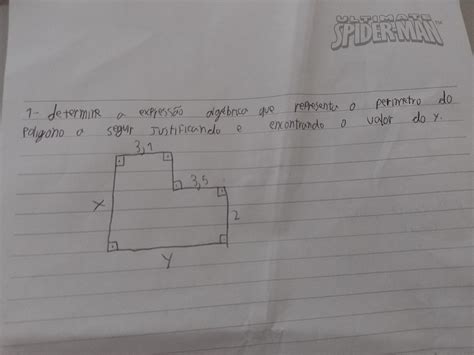 ULTIMATE
SPIDER-MAN™
1- determine a expressão algébrica que representa o perimetro do
poligono a seguir justificando e encontrando o valor do y.
3,1
3,5
X
2
Y